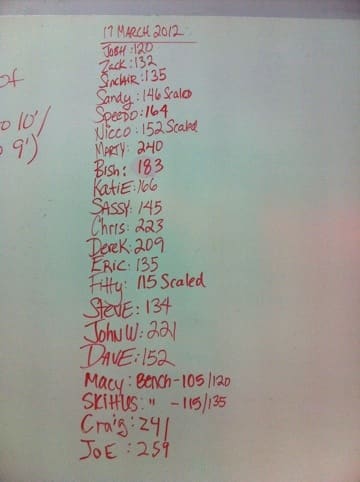 17 MARCH 2012
JOSH: 120
Zack: 132
SINCLAIR: 135
Sandy: 146 Scaled
SPEEDO: 164
of
NICCO: 152 Scaled
o 10'/
MARTY: 240
o 9')
Bish: 183
KatiE: 166
SASSY: 145
Chris: 223
DereK: 209
ERIC: 135
Fitty: 115 Scaled
STEVE: 134
JOHN W: 221
DAVE: 152
Macy: Bench - 105/120
SKittLES: " - 115/135
Craig: 241
JOE: 259